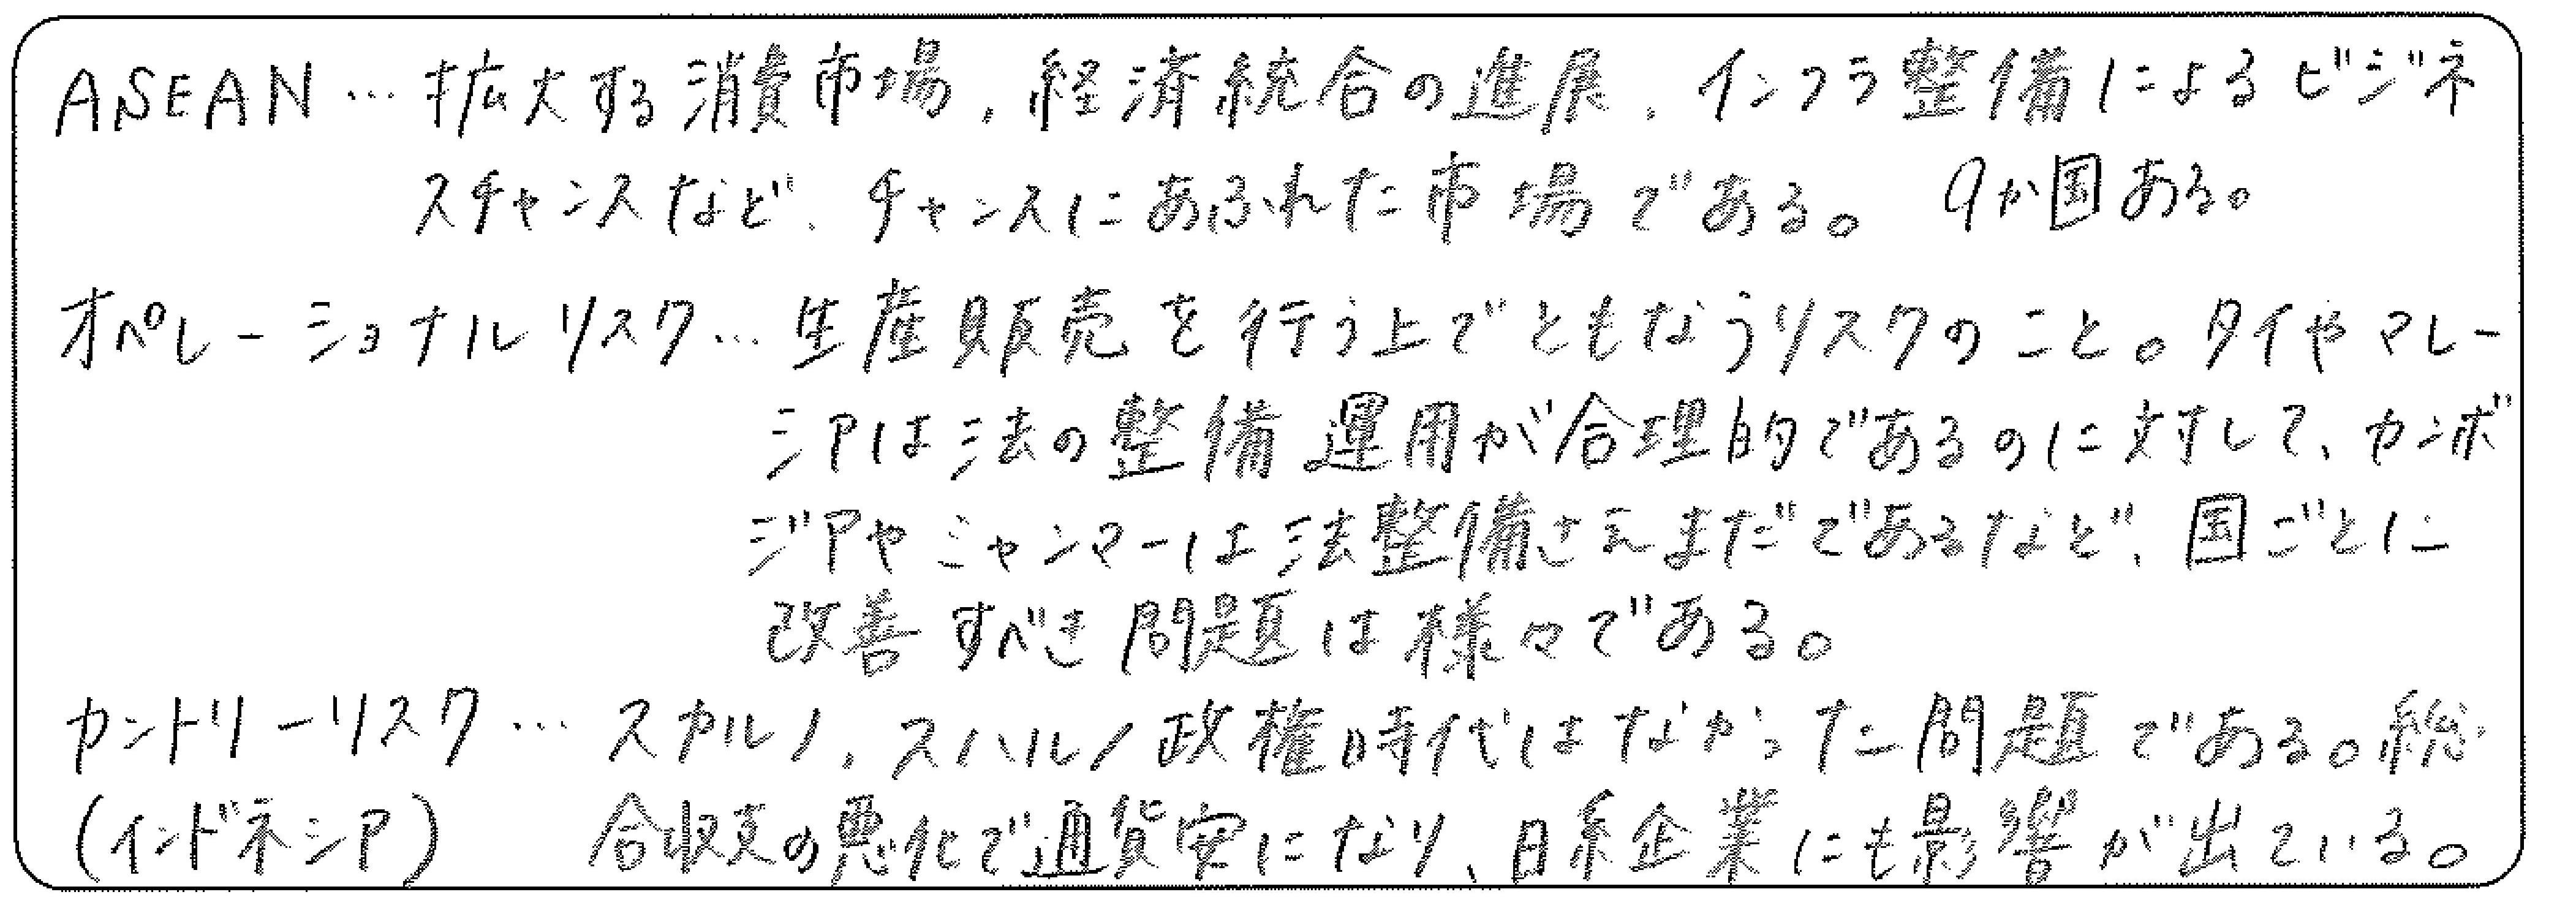 ASEAN…拡大する消費市場，経済統合の進展，インフラ整備によるビジネ
スチャンスなど，チャンスにあふれた市場である。 9か国ある。
オペレーショナルリスク…生産販売を行う上でともなうリスクのこと。タイやマレー
シアは法の整備運用が合理的であるのに対して、カンボ
ジアやミャンマーは法整備さえまだであるなど、国ごとに
改善すべき問題は様々である。
カントリーリスク…スカルノ，スハルノ政権時代はなかった問題である。総
(インドネシア) 合収支の悪化で通貨安になり、日系企業にも影響が出ている。